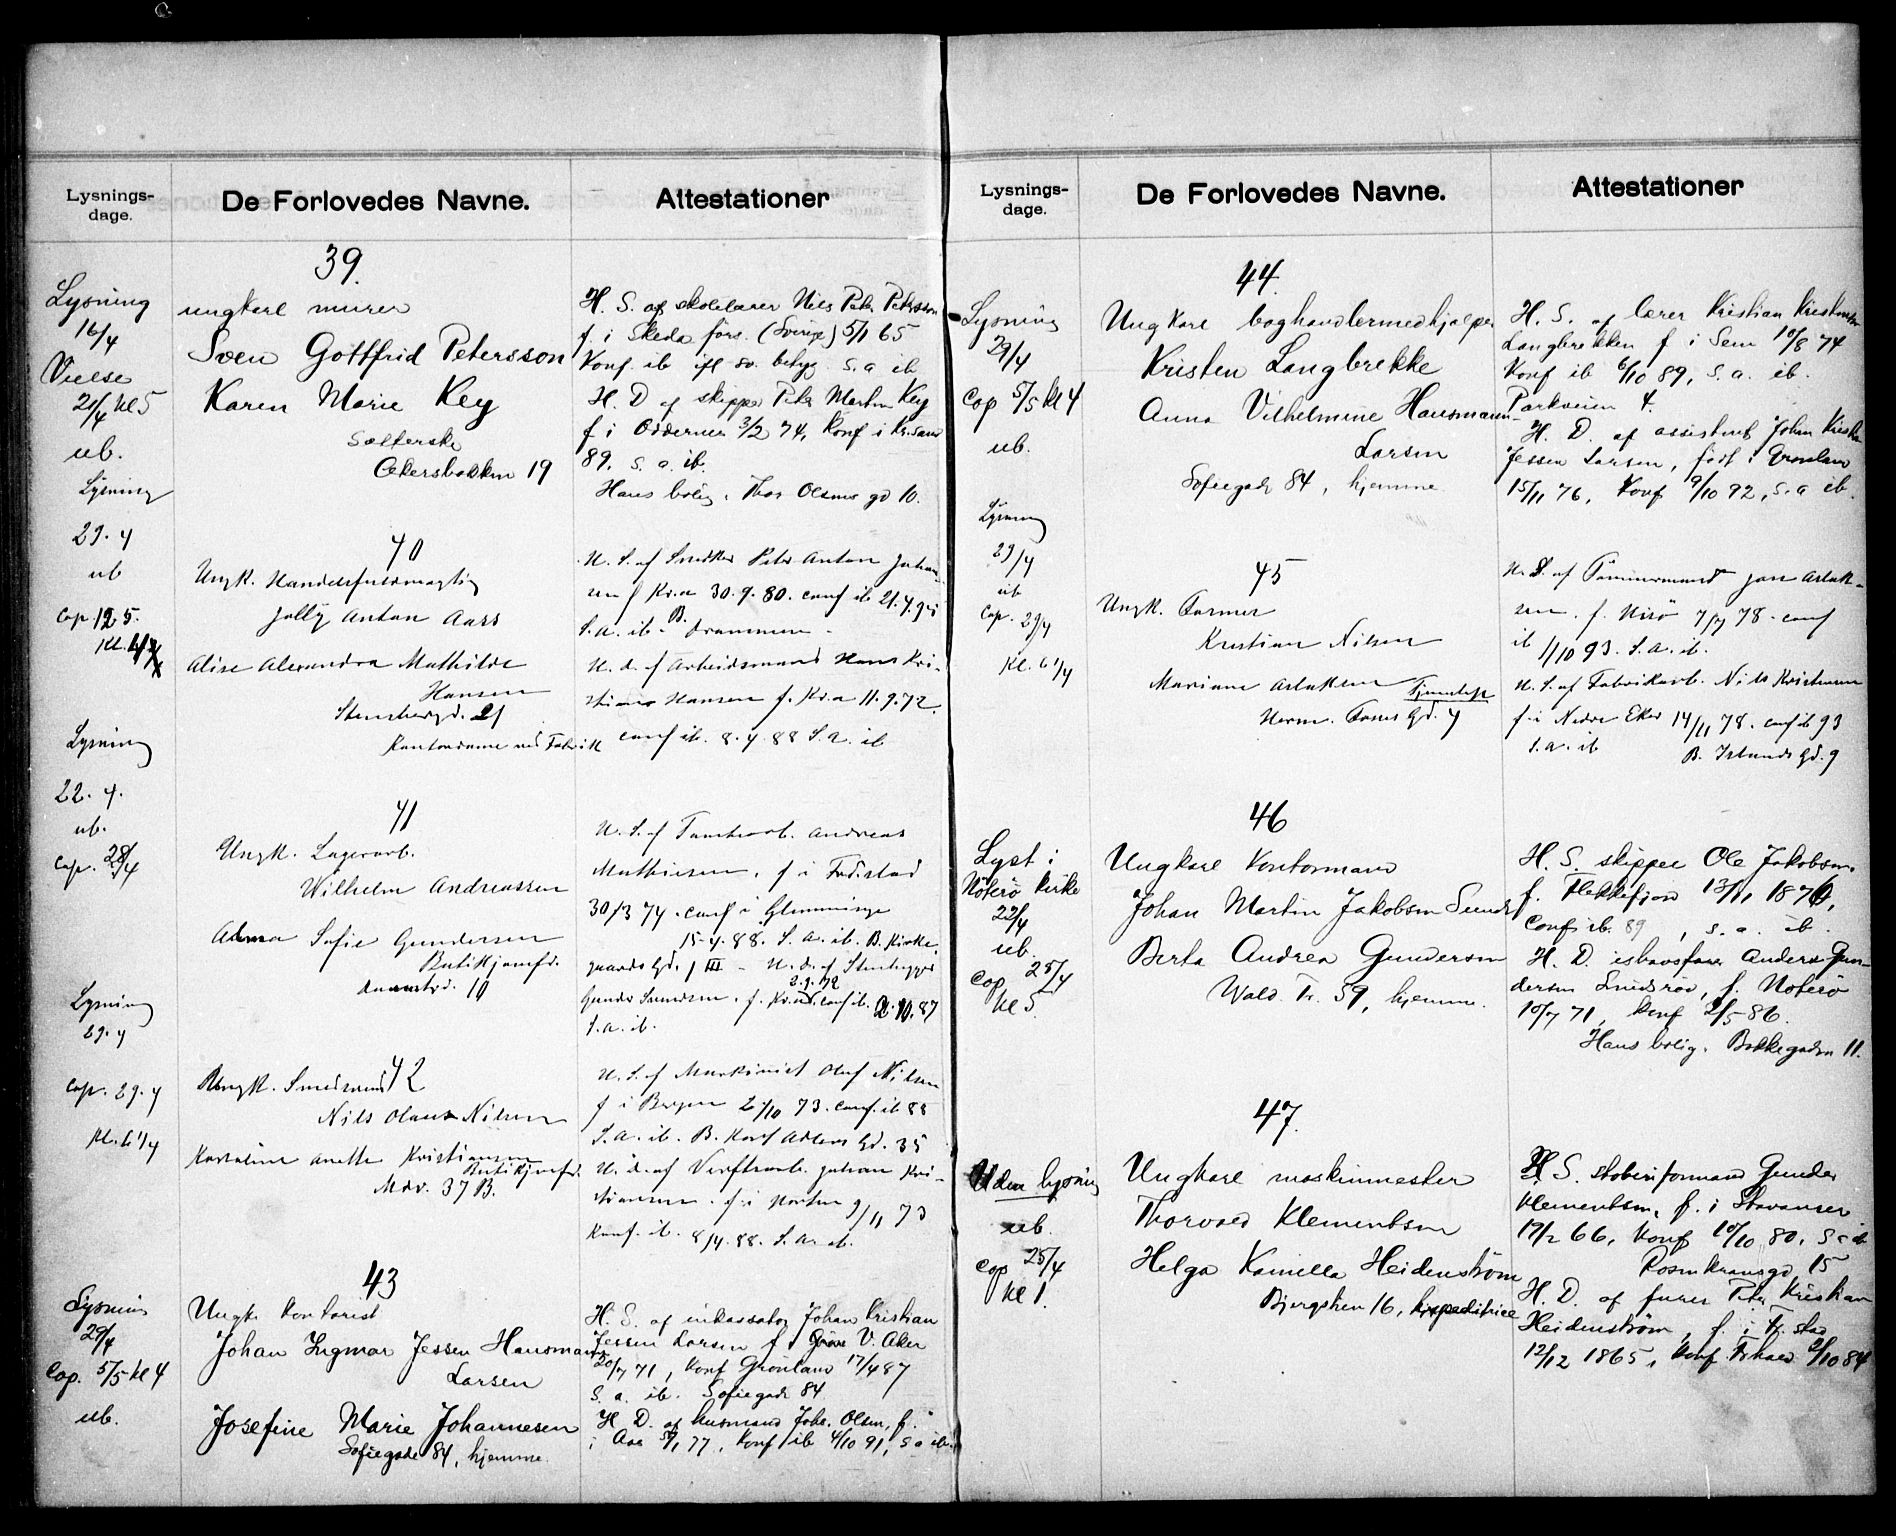 Lysnings-
dage.
De Forlovedes Navne.
Attestationer
39.
Lysning
16/4
Vielse
21/4 kl 5
ub.
ungkarl murer
Sven Gottfrid Petersson
Karen Marie Key
Akersbakken 19
H. S. af skolelærer Nils Petr Petersson
f. i Skeda förs. (Sverige) 5/1 65
Konf. ib ifl sv. betyg. s. a ib
H. D af skipper Petr Martin Key
f i Oddernes 3/2 74, Konf i Kr.sand
89. s. a. ib.
Hans bolig. Thor Olsens gd 10.
40
Lysning
29. 4
ub
Cap. 12 5.
Ungk. Handelsfuldmægtig
Jolly Anton Aass
Alise Alexandra Mathilde
Hansen
Stensberggd. 21
Kontordame ved Fabrik
U. S. af Snedker Petr Anton Johan-
sen f Kr.a 30. 9. 80. conf ib 21. 4. 95
S. a. ib. B. Drammen
U. d. af Arbeidsmand Hans Kri-
stian Hansen f. Kr.a 11. 9. 72.
conf ib. 8. 4. 88 S. a. ib
41
Lysning
22. 4.
ub.
Cap. 28/4
Ungk. Lagerarb.
Wilhelm Andreassen
Sofie Gundersen
10
U. S. af Tomtearb. Andreas
Mathisen, f i Fr.stad
30/3 74. conf i Glemminge
15. 4. 88. S. a. ib. B. Kirke
gaards Gd. 1 III - U. d. af Stenhugger
2. 9. 72
Gunder f. Kr.a conf ib. 2. 10. 87
S. a. ib.
42
Lysning
29. 4
Cap. 29. 4
Kl. 6 1/4
Ungk. Smedsvend
Nils Olaus Nilsen
Karoline Anette Kristiansen
Butikjomfr.
Mdv. 37 B.
U. S. af Maskinist Oluf Nilsen
f i Bergen 2/10 73. conf. ib 88
S. a. ib. B. Karl Adlers Gd. 35
U. d. af Verftsarb. Johan Kri-
stiansen. f. i Horten 9/11 73
Konf. ib. 8/4. 88. S. a. ib.
43
Lysning
29/4
Cop. 5/5 kl 4
ub.
Ungk. kontorist
Johan Ingmar Jessen Hausmann
Larsen
Josefine Marie Johannesen
Sofiegade 84, hjemme.
H. S. af inkassator Johan Kristian
Jessen Larsen f. V. Aker
20/7 71, Konf Grönland 17/4 87
S. a. ib. Sofiegade 84
H. D. af husmand Johs. Olsen, f.
i Aas 5/1 77, Konf ib 4/10 91, s a ib.
Lysnings-
dage.
De Forlovedes Navne.
Attestationer
44.
Lysning
29/4
Cop 5/5 kl 4
ub.
Ungkarl boghandlermedhjælper
Kristen Langbrekke
Anna Vilhelmine Hausmann
Larsen
Sofiegade 84, hjemme.
H. S. af lærer Kristian Kristensen
Langbrekken f i Sem 10/8 74
Konf ib 6/10 89, s. a. ib.
Parkveien 4.
H. D. af assistent Johan Kristian
Jessen Larsen, født i Grønland
15/11 76, Konf 9/10 92, s. a ib.
45
Lysning
29/4
ub
Cop. 29/4
Kl. 6 1/4
Ungk. Former
Kristian Nilsen
Mariane Aslaksen Tjenestep.
Herm. Foss Gd. 4
U. d. af Tømmermand Aslak-
sen. f. 7/7 78. conf
ib 1/10 93. S. a. ib.
U. S. af Fabrikarb. Nils Kristensen
f. i Nedre Eker 14/11 78. conf ib 93
S. a. ib
B. Islands Gd. 9
46
Lyst i
Nøterø Kirke
22/4
ub.
Cop 25/4
kl 5.
Ungkarl kontormand
Johan Martin Jakobsen Sunde
Berta Andrea Gundersen
Wald. Tr. 59, hjemme.
H. S. skipper Ole Jakobsen.
f. Flekkefjord 13/11 1874,
Conf ib. 89, s. a. ib.
H. D. ishavsfarer Anders Gun-
dersen f. Nøterø
10/7 71, konf 2/5 86.
Hans bolig. Bekkegaden 11.
47.
Uden lysning
ub.
Cop 25/4
kl 1.
Ungkarl maskinmester
Thorvald Klementsen
Helga Kamilla Heidenström
Bjergstien 16, Expeditrice
H. S. støberiformand Gunder
Klementsen, f. i Stavanger
17/2 66, Konf 10/10 80, s a ib
Rosenkransgd 15
H. D. af furer Petr Kristian
Heidenström, f. i Fr.stad
12/12 1865, Konf Fr.hald 2/10 84